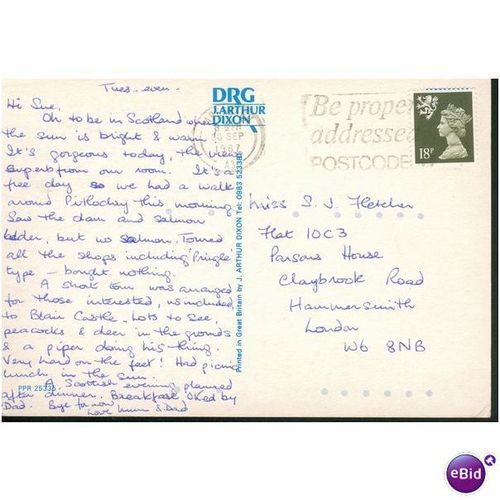 Tues. even.
Hi Sue,
Oh to be in Scotland when
the sun is bright & warm
It's gorgeous today, the view
superb from our room. It's a
free day so we had a walk
around Pitlochry this morning
Saw the dam and salmon
ladder, but no salmon. Toured
all the shops including 'Pringle'
type - bought nothing.
A short tour was arranged
for those interested, us included,
to Blair Castle. Lots to see,
peacocks & deer in the grounds
& a piper doing his thing.
Very hard on the feet! Had picnic
lunch in the sun.
A Scottish evening planned
after dinner. Breakfast OKed by
Dad. Bye for now
Love Mum & Dad
PPR 25335
DRG
J.ARTHUR
DIXON
Printed in Great Britain by J. ARTHUR DIXON Tel: 0983 523381
SEP
1987
Be proper
addressed
POSTCODE
18P
Miss S. J. Fletcher
Flat 10C3
Parsons House
Claybrook Road
Hammersmith
London
W6 8NB
eBid